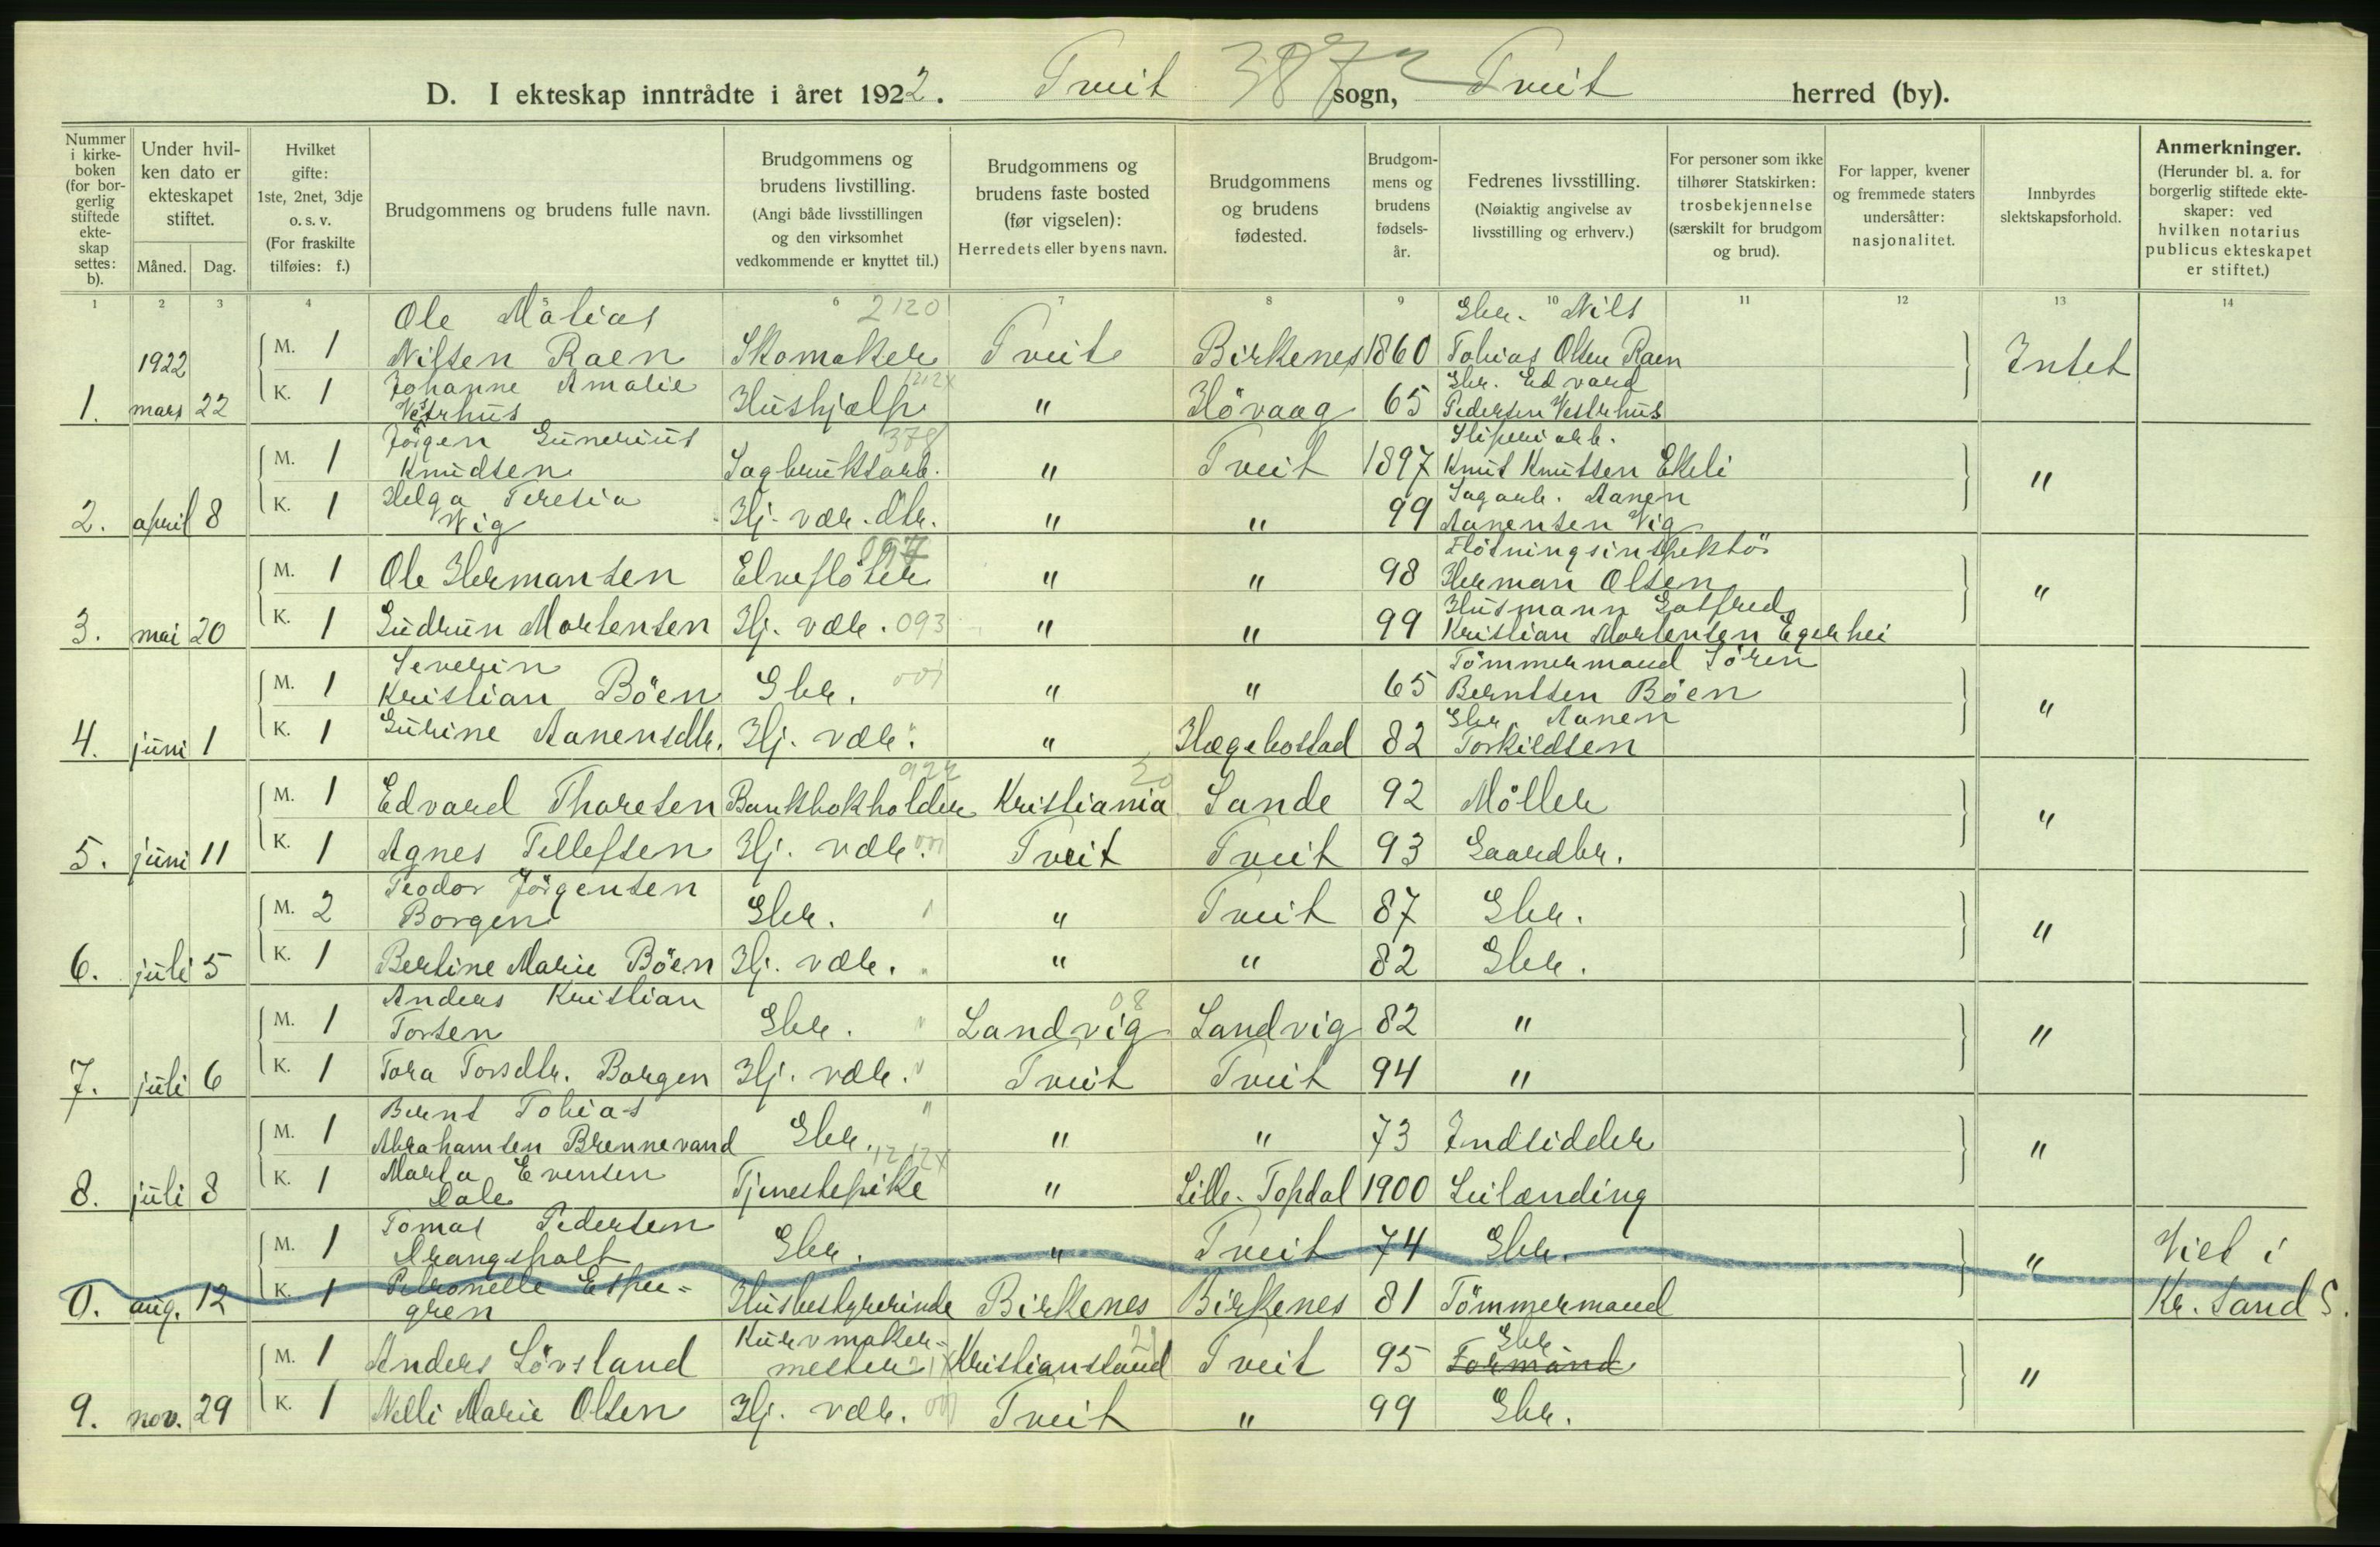 D. I ekteskap inntrådte i året 1922. Tveit 387 sogn, Tveit herred (by).
Nummer i kirkeboken (for borgerlig stiftede ekteskap settes: b).
Under hvilken dato er ekteskapet stiftet.
Måned. Dag.
Hvilket gifte: 1ste, 2net, 3dje o. s. v. (For fraskilte tilføies: f.)
Brudgommens og brudens fulle navn.
Brudgommens og brudens livstilling. (Angi både livsstillingen og den virksomhet vedkommende er knyttet til.)
Brudgommens og brudens faste bosted (før vigselen): Herredets eller byens navn.
Brudgommens og brudens fødested.
Brudgommens og brudens fødselsår.
Fedrenes livsstilling. (Nøiaktig angivelse av livsstilling og erhverv.)
For personer som ikke tilhører Statskirken: trosbekjennelse (særskilt for brudgom og brud).
For lapper, kvener og fremmede staters undersåtter: nasjonalitet.
Innbyrdes slektskapsforhold.
Anmerkninger. (Herunder bl. a. for borgerlig stiftede ekteskaper: ved hvilken notarius publicus ekteskapet er stiftet.)
1 2 3 4 5 6 7 8 9 10 11 12 13 14
1922
M. 1 Ole Matias Nilsen Raen Skomaker 2120 Tveit Birkenes 1860 Gbr. Nils Tobias Olsen Raen Intet
1. mars 22 K. 1 Johanne Amalie Vestrhus Hushjælp 1212x " Hövaag 65 Gbr. Edvard Pedersen Vestrhus
M. 1 Jörgen Gunerius Knudsen Sagbruksarb. 378 " Tveit 1897 Sliperiarb. Knut Knutsen Ekeli "
2. april 8 K. 1 Helga Teresia Vig Hj. vær. dtr. " " 99 Sagarb. Aanen Aanensen Vig
M. 1 Ole Hermansen Elveflöter " " 98 Flötningsinspektör Herman Olsen "
3. mai 20 K. 1 Gudrun Mortensen Hj. vær. 093 " " 99 Husmann Gotfred Kristian Mortensen Egerhei
M. 1 Severin Kristian Böen Gbr. 001 " " 65 Tömmermand Sören Berntsen Böen "
4. juni 1 K. 1 Gurine Aanensdtr. Hj. vær. " " Hægebostad 82 Gbr. Aanen Torkildsen
M. 1 Edvard Thoresen Bankbokholder 922 Kristiania 20 Sande 92 Möller "
5. juni 11 K. 1 Agnes Tellefsen Hj. vær. 001 Tveit Tveit 93 Gaardbr.
M. 2 Teodor Jörgensen Borgen Gbr. " Tveit 87 Gbr. "
6. juli 5 K. 1 Bertine Marie Böen Hj. vær. " " " 82 Gbr.
M. 1 Anders Kristian Torsen Gbr. " Landvig 08 Landvig 82 " "
7. juli 6 K. 1 Tora Torsdtr. Borgen Hj. vær. " Tveit Tveit 94 "
M. 1 Bernt Tobias Abrahamsen Brennevand Gbr. " " " 73 Indsidder "
8. juli 8 K. 1 Marta Evensen Dale Tjenestepike 1212x " Lille-Topdal 1900 Leilænding
M. 1 Tomas Pedersen Drangsholt Gbr. " Tveit 74 Gbr. " Viet i
0. aug. 12 K. 1 Petronelle Espegren Husbestyrerinde Birkenes Birkenes 81 Tömmermand Kr. sand S.
M. 1 Anders Lövsland Kurvmakermester Kristiansand Tveit 95 Gbr Formand "
9. nov. 29 K. 1 Nelli Marie Olsen Hj. vær. 001 Tveit " 99 Gbr.